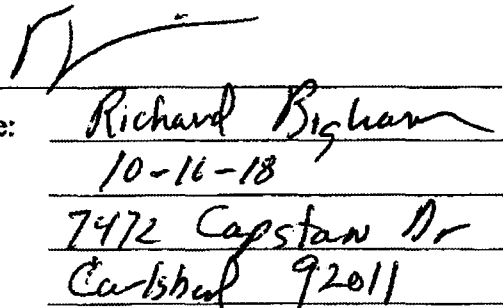 e: Richard Bigham
10-16-18
7472 Capstan Dr
Carlsbad 92011